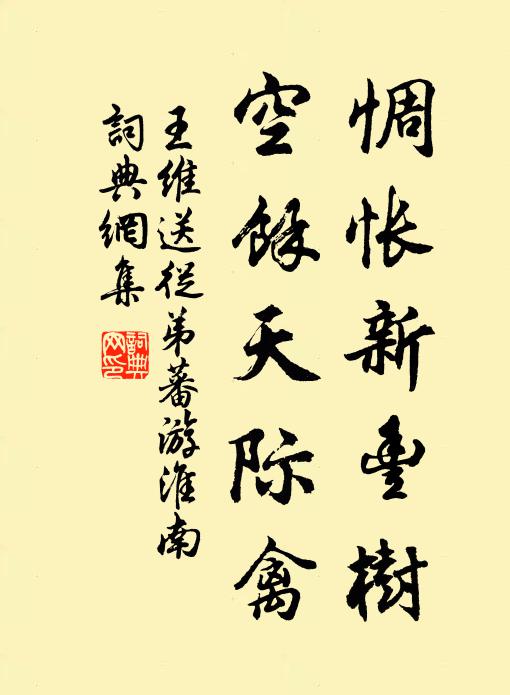 惆怅新豊樹
空餘天际禽
王維送從弟蕃游淮南
詞典網集
詞典网印